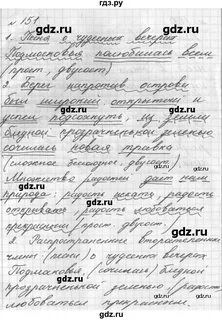 № 151
1. Песня о чудесных вечерах
Подмосковья полюбилась всем
(прост., двусост)
2. Берег напротив островы
был широким открытым и
успел подсохнуть, из земли
бледной прозрачненькой зеленью
сочилась новая травка
(сложное бессоюзное, двусост).
Множество радости дает нам
природа радость искать, радость
открывать, радость любоваться
прекрасным (прост., двусост).
2. Распространенные второстепенные
члены о чудесных вечерах
Подмосковья (сочилась) бледной
прозрачненькой зеленью (радость)
любоваться прекрасным.